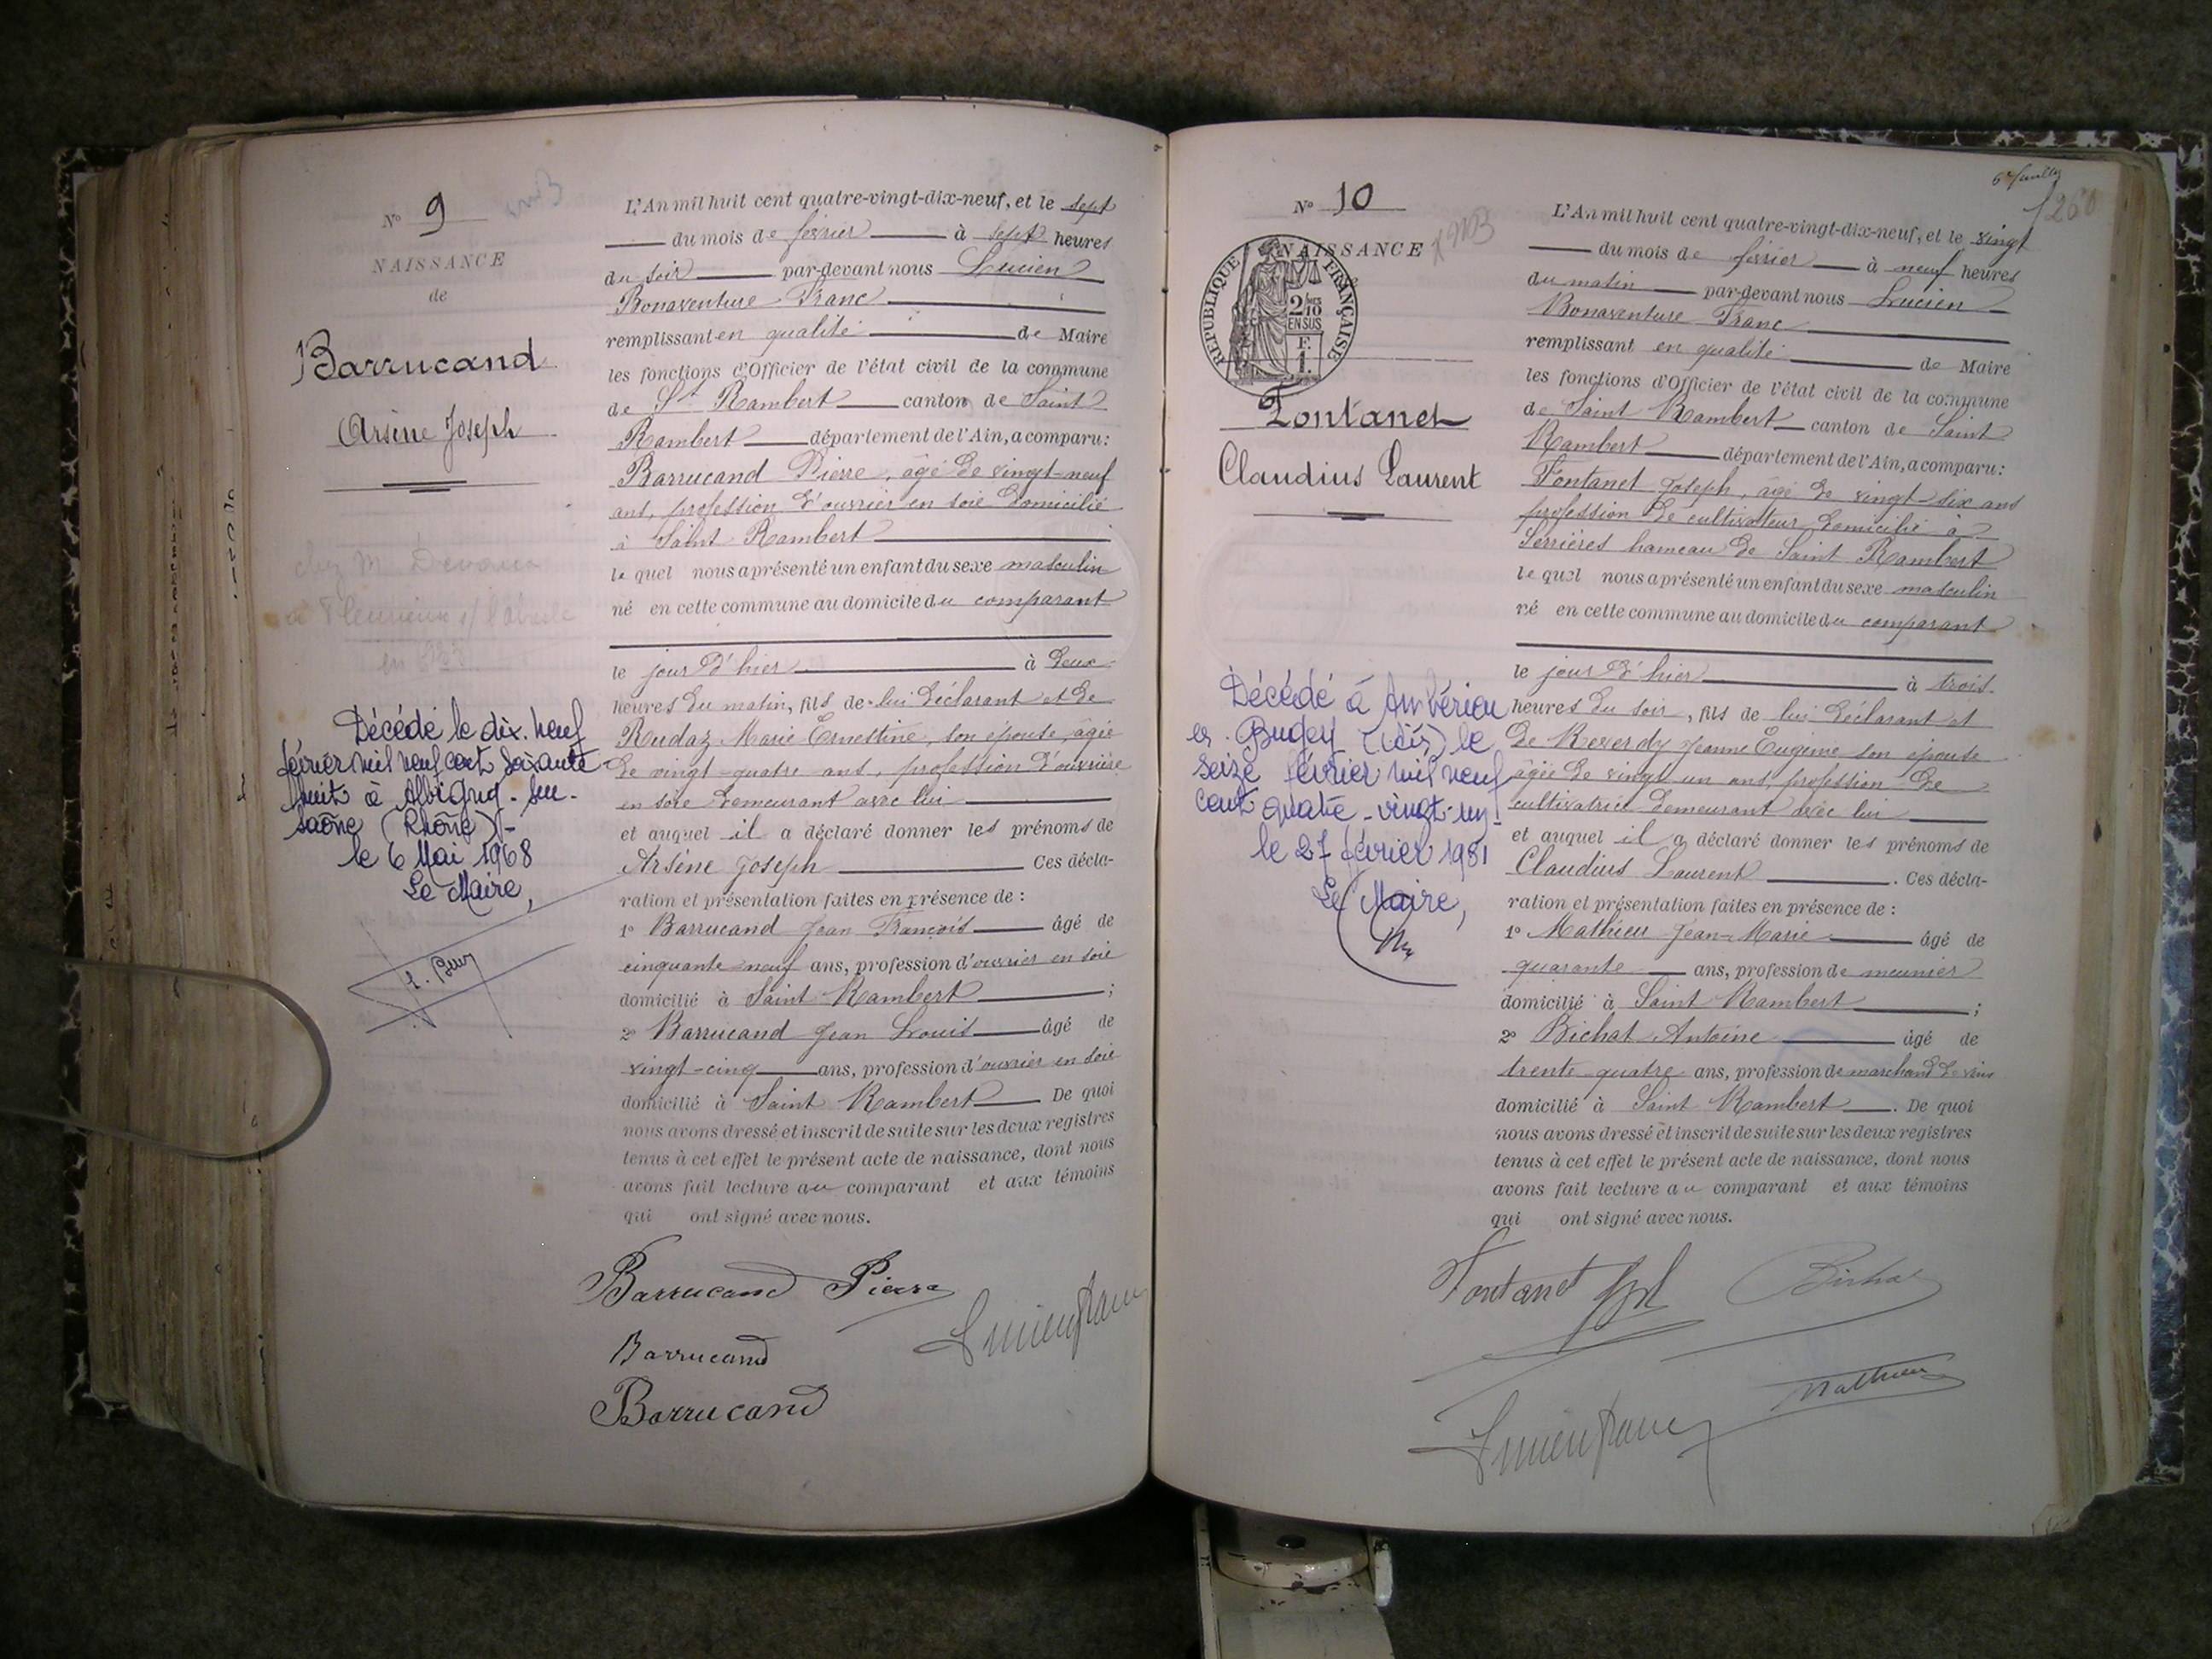 N° 9
NAISSANCE
de
Barrucand
Arsène Joseph
chez M
en
Décédé le dix-neuf
février mil neuf cent soixante
huit à Albigny-sur-
saône (Rhône)-
le 6 Mai 1968
Le Maire,
L'An mil huit cent quatre-vingt-dix-neuf, et le sept
du mois de février à sept heures
du soir par-devant nous Lucien
Bonaventure Franc
remplissant en qualité de Maire
les fonctions d'Officier de l'état civil de la commune
de St Rambert canton de Saint
Rambert département de l'Ain, a comparu:
Barrucand Pierre, âgé de vingt-neuf
ans, profession d'ouvrier en soie domicilié
à Saint Rambert
le quel nous a présenté un enfant du sexe masculin
né en cette commune au domicile du comparant
le jour d'hier à deux
heures du matin, fils de lui déclarant et de
Rudaz Marie Ernestine, son épouse, âgée
de vingt-quatre ans, profession d'ouvrière
en soie demeurant avec lui
et auquel il a déclaré donner les prénoms de
Arsène Joseph Ces décla-
ration et présentation faites en présence de :
1° Barrucand Jean François âgé de
cinquante neuf ans, profession d'ouvrier en soie
domicilié à Saint Rambert ;
2° Barrucand Jean Louis âgé de
vingt-cinq ans, profession d'ouvrier en soie
domicilié à Saint Rambert De quoi
nous avons dressé et inscrit de suite sur les deux registres
tenus à cet effet le présent acte de naissance, dont nous
avons fait lecture au comparant et aux témoins
qui ont signé avec nous.
Barrucand Pierre
Lucien Franc
Barrucand
Barrucand
260
N° 10
NAISSANCE
RÉPUBLIQUE FRANÇAISE
2/10
EN SUS
F.
1.
Fontanet
Claudius Laurent
Décédé à Ambérieu
en-Bugey (Ain) le
seize février mil neuf
cent quatre-vingt-un-
le 27 février 1981
Le Maire,
L'An mil huit cent quatre-vingt-dix-neuf, et le vingt
du mois de février à neuf heures
du matin par-devant nous Lucien
Bonaventure Franc
remplissant en qualité de Maire
les fonctions d'Officier de l'état civil de la commune
de Saint Rambert canton de Saint
Rambert département de l'Ain, a comparu:
Fontanet Joseph, âgé de vingt-six ans
profession de cultivateur domicilié à
Serrières hameau de Saint Rambert
le quel nous a présenté un enfant du sexe masculin
né en cette commune au domicile du comparant
le jour d'hier à trois
heures du soir, fils de lui déclarant et
de Reverdy Jeanne Eugénie son épouse
âgée de vingt un ans, profession de
cultivatrice demeurant avec lui
et auquel il a déclaré donner les prénoms de
Claudius Laurent. Ces décla-
ration et présentation faites en présence de :
1° Mathieu Jean-Marie âgé de
quarante ans, profession de meunier
domicilié à Saint Rambert ;
2° Bichat Antoine âgé de
trente quatre ans, profession de marchand de vins
domicilié à Saint Rambert. De quoi
nous avons dressé et inscrit de suite sur les deux registres
tenus à cet effet le présent acte de naissance, dont nous
avons fait lecture au comparant et aux témoins
qui ont signé avec nous.
Fontanet Jph Bichat
Mathieu
Lucien Franc